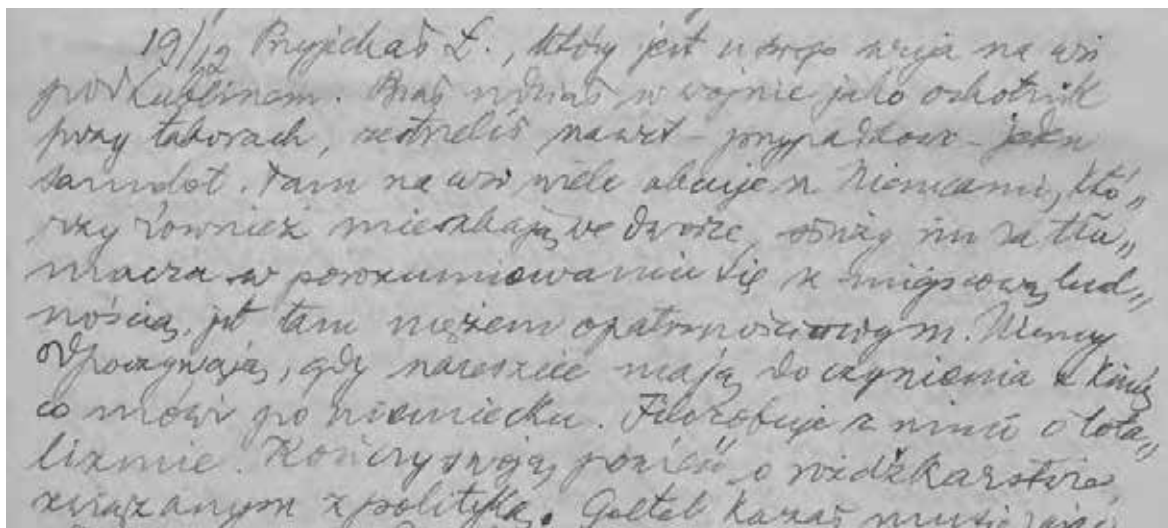 19/12 Przyjechał Ł., który jest u swego wuja na wsi
pod Lublinem. Brał udział w wojnie jako ochotnik
przy taborach, zestrzelił nawet - przypadkowo - jeden
samolot. Tam na wsi wiele obcuje z Niemcami, któ„
rzy również mieszkają we dworze, służy im za tłu„
macza w porozumiewaniu się z miejscową lud„
nością, jest tam mężem opatrznościowym. Niemcy
odpoczywają, gdy nareszcie mają do czynienia z kimś
co mówi po niemiecku. Filozofuje z nimi o tota„
lizmie. Kończy swoją powieść o różdżkarstwie,
związanym z polityką. Goetel kazał mu